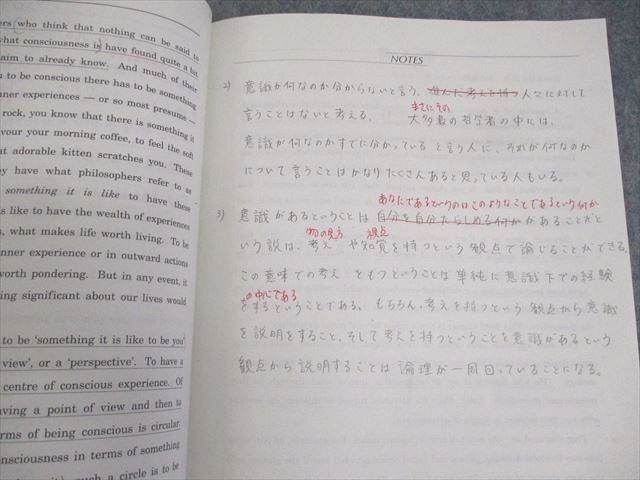 ers who think that nothing can be said to
what consciousness is have found quite a bit
aim to already know. And much of their
u to be conscious there has to be something
nner experiences — or so most presume —
rock, you know that there is something it
vour your morning coffee, to feel the soft
at adorable kitten scratches you. These
ey have what philosophers refer to as
something it is like to have these
is like to have the wealth of experiences
s, what makes life worth living. To be
nner experience or in outward actions
worth pondering. But in any event, it
ing significant about our lives would
to be 'something it is like to be you'
view', or a 'perspective'. To have a
centre of conscious experience. Of
aving a point of view and then to
rms of being conscious is circular.
nsciousness in terms of something
such a circle is to be
NOTES
2) 意識が何なのか分からないと言う、進んだ考えを持つ人々に対して
まさにその
言うことはないと考える、大多数の哲学者の中には、
意識が何なのかすでに分かっていると言う人に、それが何なのか
について言うことはかなりたくさんあると思っている人もいる。
あなたであるというのはこのようなことであるという何か
3) 意識があるということは自分を自分たらしめる何かがあることだと
物の見方 視点
いう説は、考えや知覚を持つという観点で論じることができる。
この意味での考えをもつということは単純に意識下での経験
の中心である
をするということである。もちろん、考えを持つという観点から意識
を説明をすること、そして考えを持つということを意識があるという
観点から説明することは論理が一周回っていることになる。